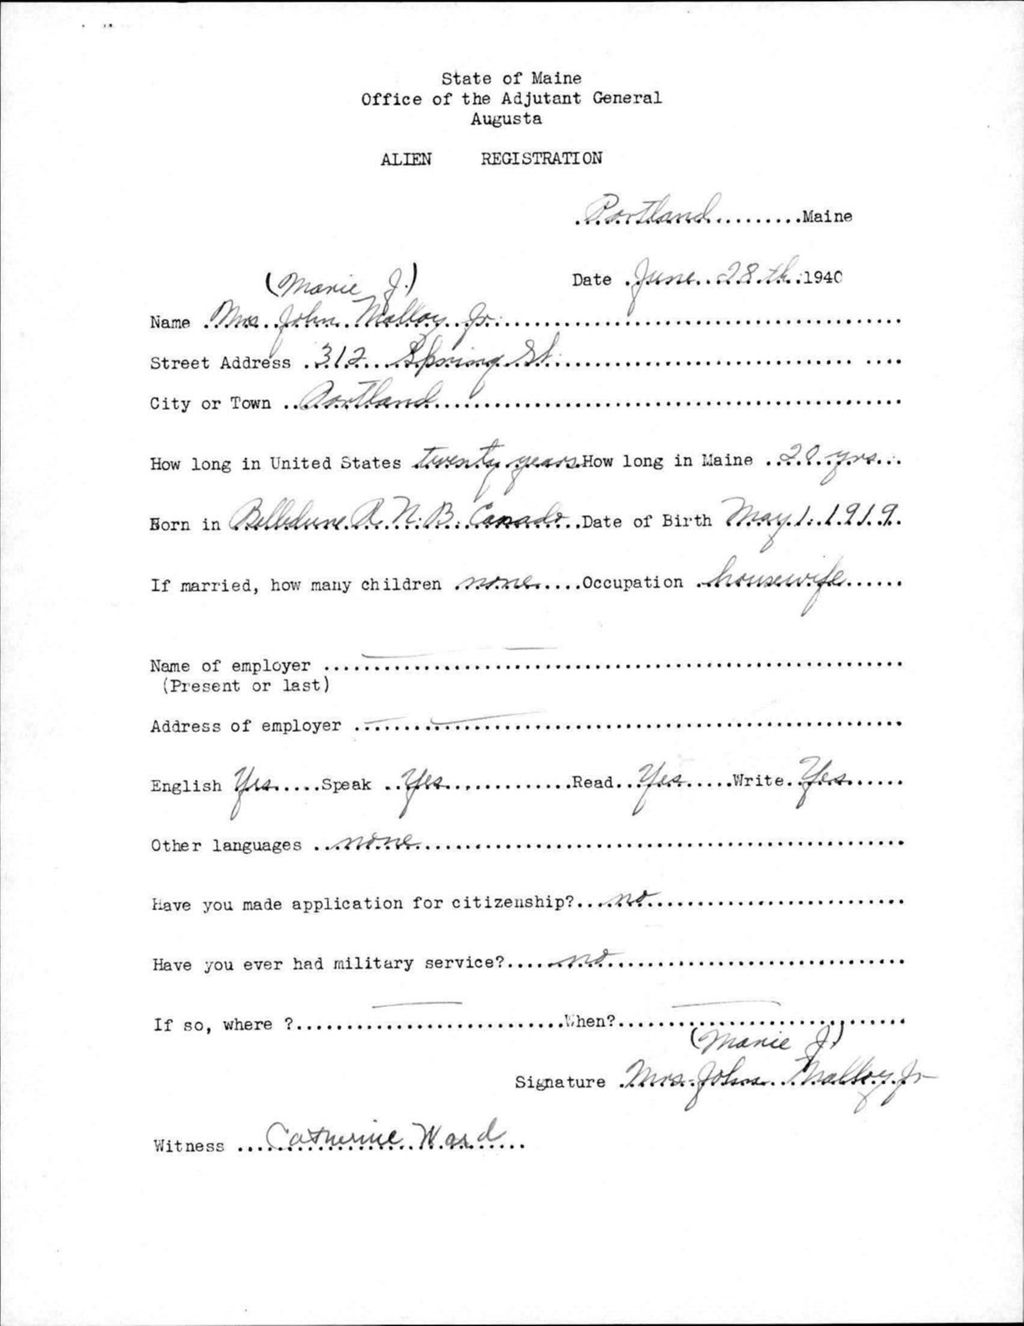 State of Maine
Office of the Adjutant General
Augusta
ALIEN REGISTRATION
Portland.........Maine
Date June 28th 1940
(Marie J.)
Name Mrs. John Malloy Jr.
Street Address 312 Spring St.
City or Town Portland
How long in United States twenty years How long in Maine 20 yrs.
Born in Belledune R. N. B. Canada Date of Birth May 1. 1919.
If married, how many children none Occupation housewife
Name of employer
(Present or last)
Address of employer
English Yes Speak Yes Read Yes Write Yes
Other languages none
Have you made application for citizenship? no
Have you ever had military service? no
If so, where ? When?
(Marie J.)
Signature Mrs. John Malloy Jr
Witness Catherine Ward